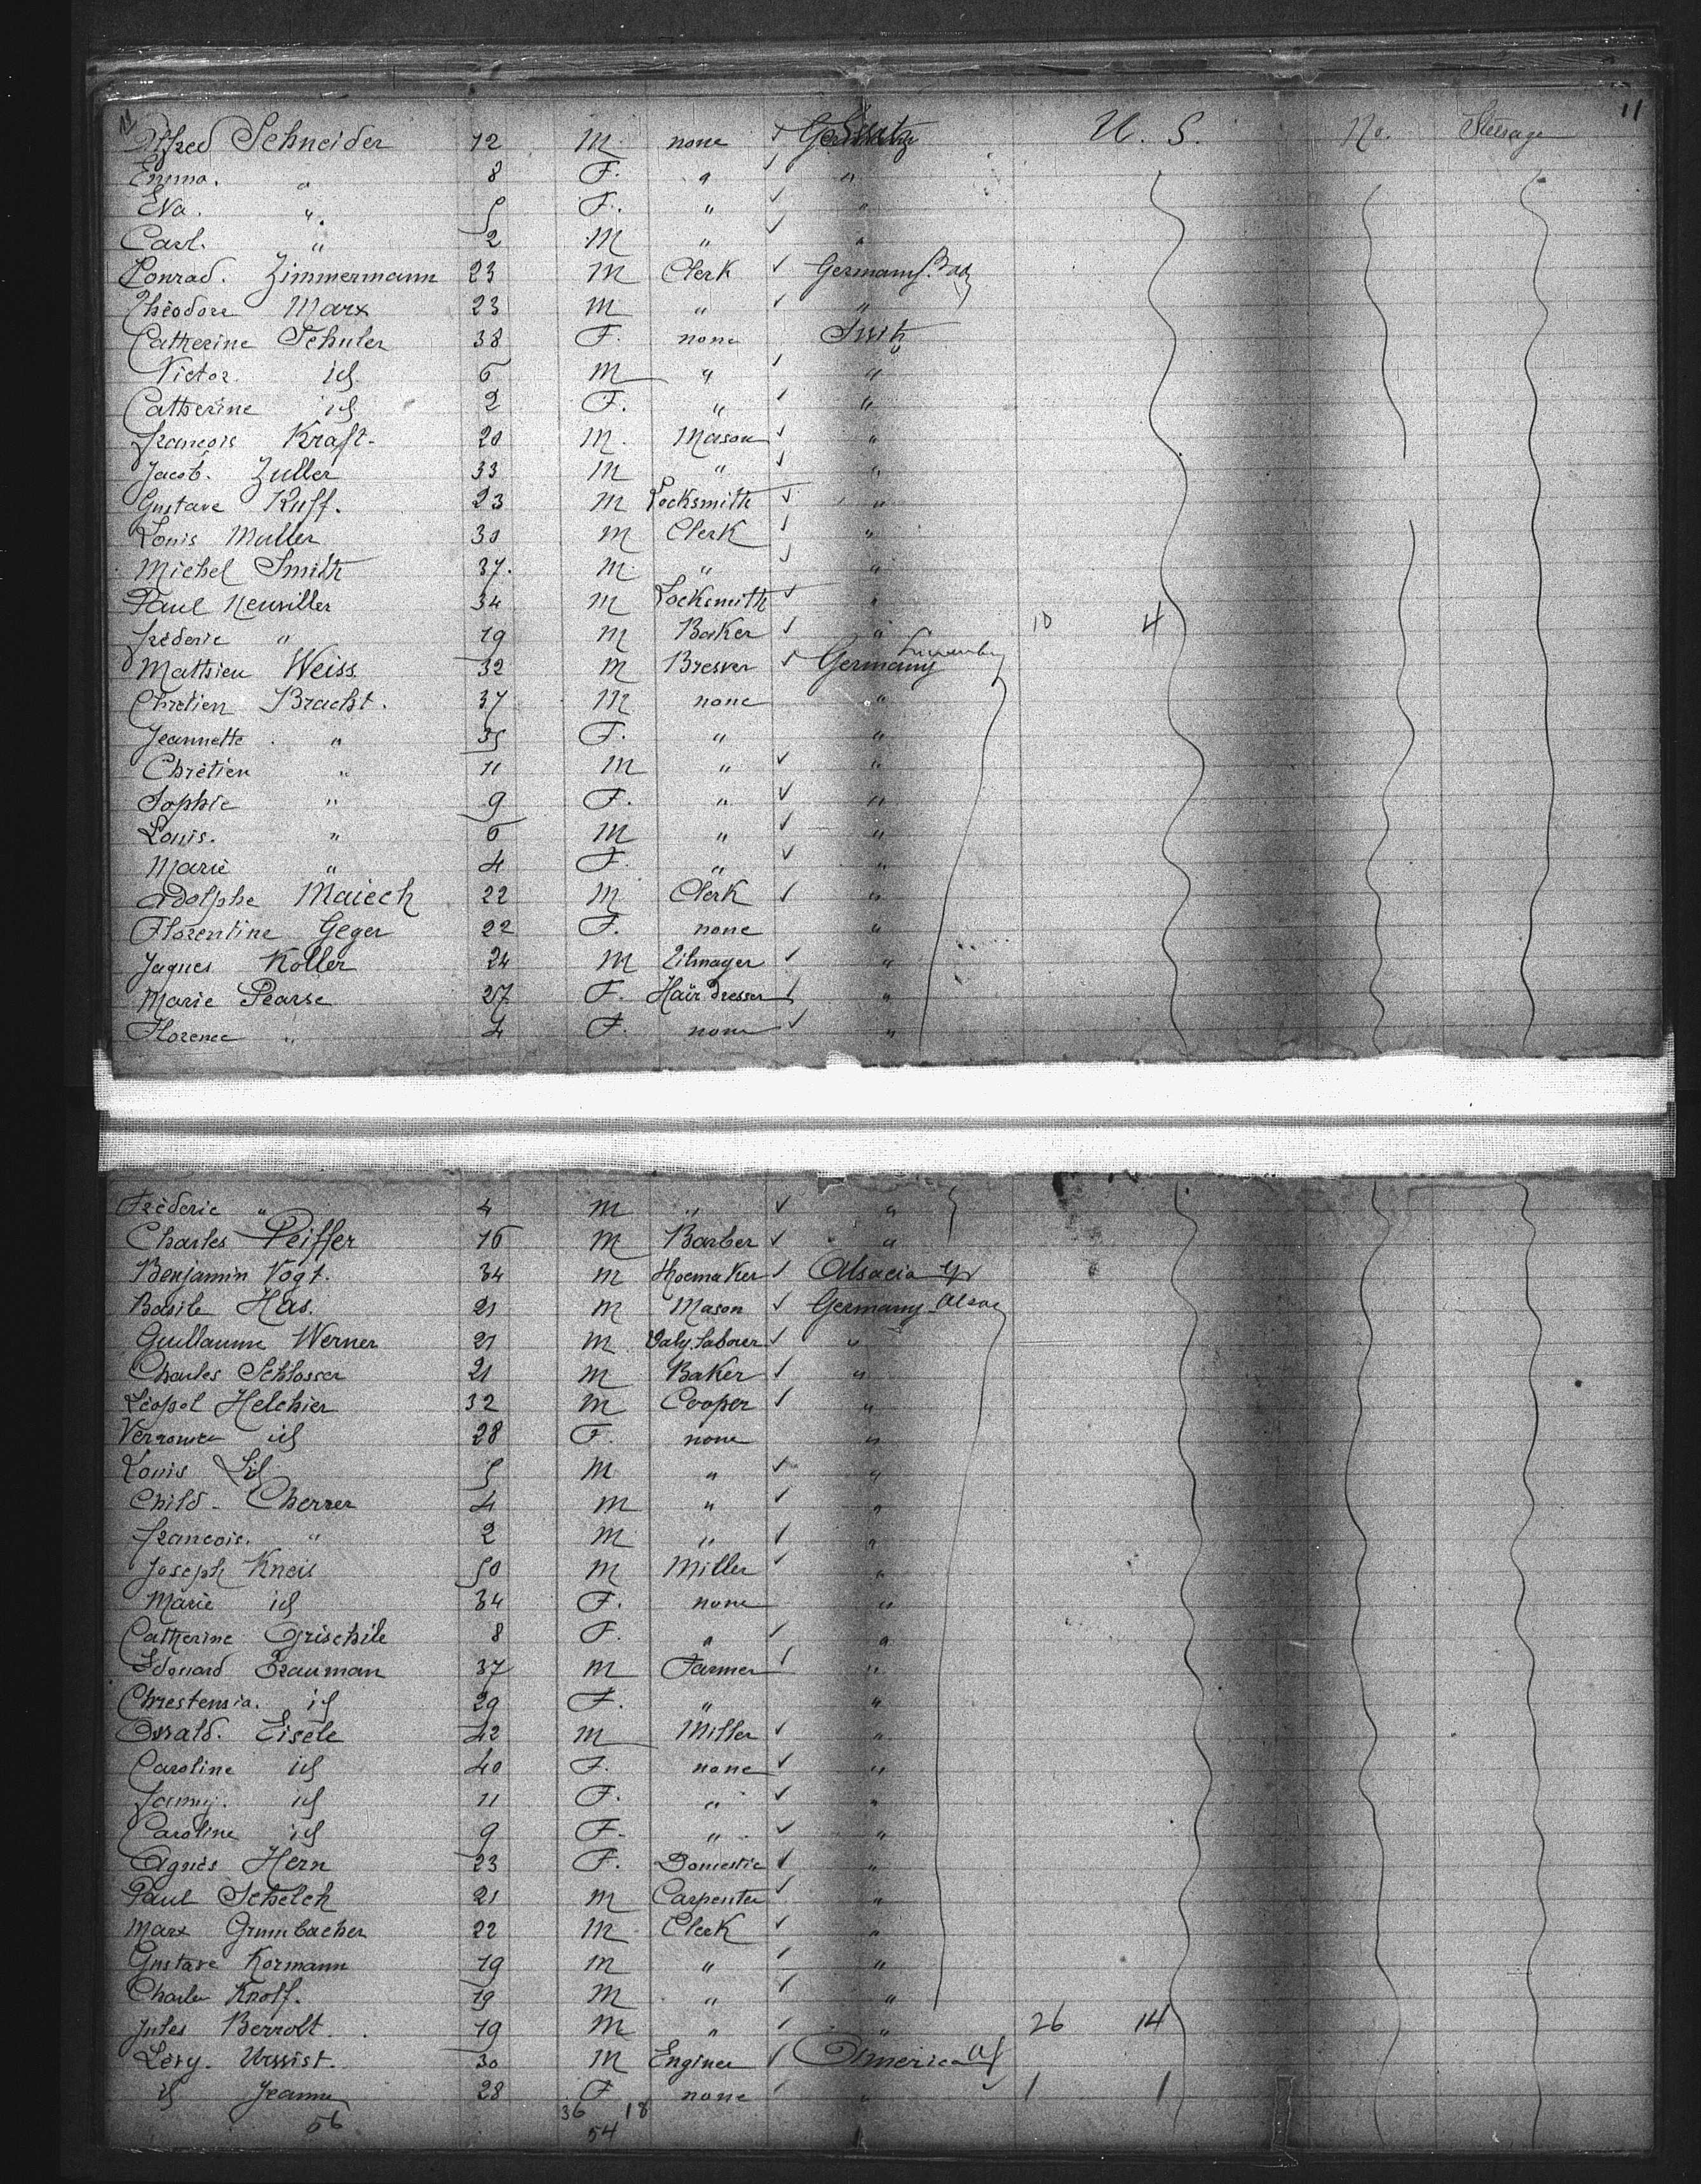 11
Alfred Schneider 12 M none Switz U. S. No. Steerage
Emma. " 8 F. " "
Eva. " 5 F. " "
Carl. " 2 M " "
Conrad. Zimmermann 23 M Clerk Germany
Théodore Marx 23 M " "
Catherine Schuler 38 F. none Switz
Victor id 6 M " "
Catherine id 2 F. " "
francois Kraft. 20 M. Mason "
Jacob. Zuller 33 M " "
Gustave Ruff. 23 M Locksmith "
Louis Muller 30 M Clerk "
Michel Smith 37. M " "
Paul Neuviller 34 M Locksmith "
fréderic " 19 M Baker " 10 4
Mathieu Weiss 32 M Brewer Germany
Chrétien Bracht. 37 M none "
Jeannette " 35 F. " "
Chrétien " 11 M " "
Sophie " 9 F. " "
Louis. " 6 M " "
Marie " 4 F. " "
Adolphe Maiech 22 M Clerk "
Florentine Geger 22 F. none "
Jaques Koller 24 M "
Marie Pearse 27 F. Hair Dresser "
Florence " 4 F. none "
Fréderic " 4 M " "
Charles Peiffer 16 M Barber "
Benjamin Vogt. 34 M Shoemaker Alsacia
Basile Has. 21 M Mason Germany Alsac
Guillaume Werner 21 M Daly. laborer "
Charles Schlosser 21 M Baker "
Léopol Helchier 32 M Cooper "
id 28 F. none "
Louis id 5 M " "
Child - Cherrer 4 M " "
francois. " 2 M " "
Joseph Kneis 50 M Miller "
Marie id 34 F. none "
Catherine Grischile 8 F. " "
Edouard Frauman 37 M Farmer "
Chrestensia. id 29 F. " "
Oswald. Eisele 42 M Miller "
Caroline id 40 F. none "
fanny. id 11 F. " "
Caroline id 9 F. " "
Agnès Hern 23 F. Domestic "
Paul Schelch 21 M Carpenter "
Marx Grumbacher 22 M Clerk "
Gustave Kormann 19 M " "
Charles Knoff. 19 M " "
Jules Berrolt. 19 M " " 26 14
Levy. Urssist. 30 M Engineer America
id Jeanne 28 F none " 1 1
56 36 18
54